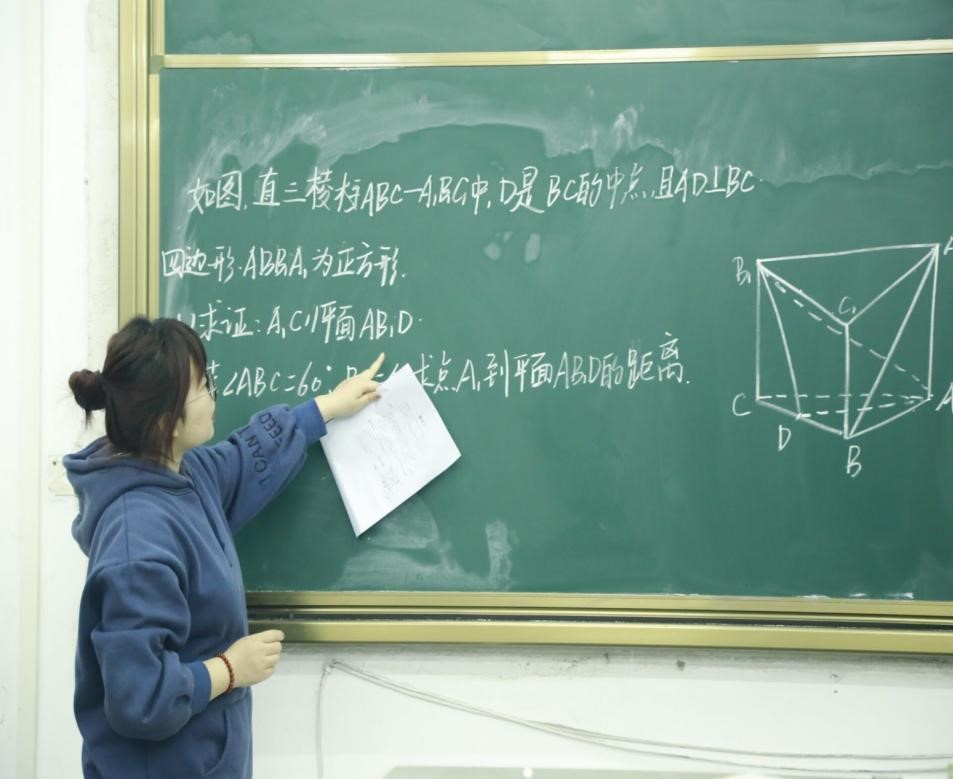 如图,直三棱柱ABC-A₁B₁C₁中,D是BC的中点,且AD⊥BC.
四边形ABB₁A₁为正方形.
求证:A₁C∥平面AB₁D.
∠ABC=60° 求点A₁到平面AB₁D的距离.
B₁
C₁
A
C
D
B
I CAN'T
FEED